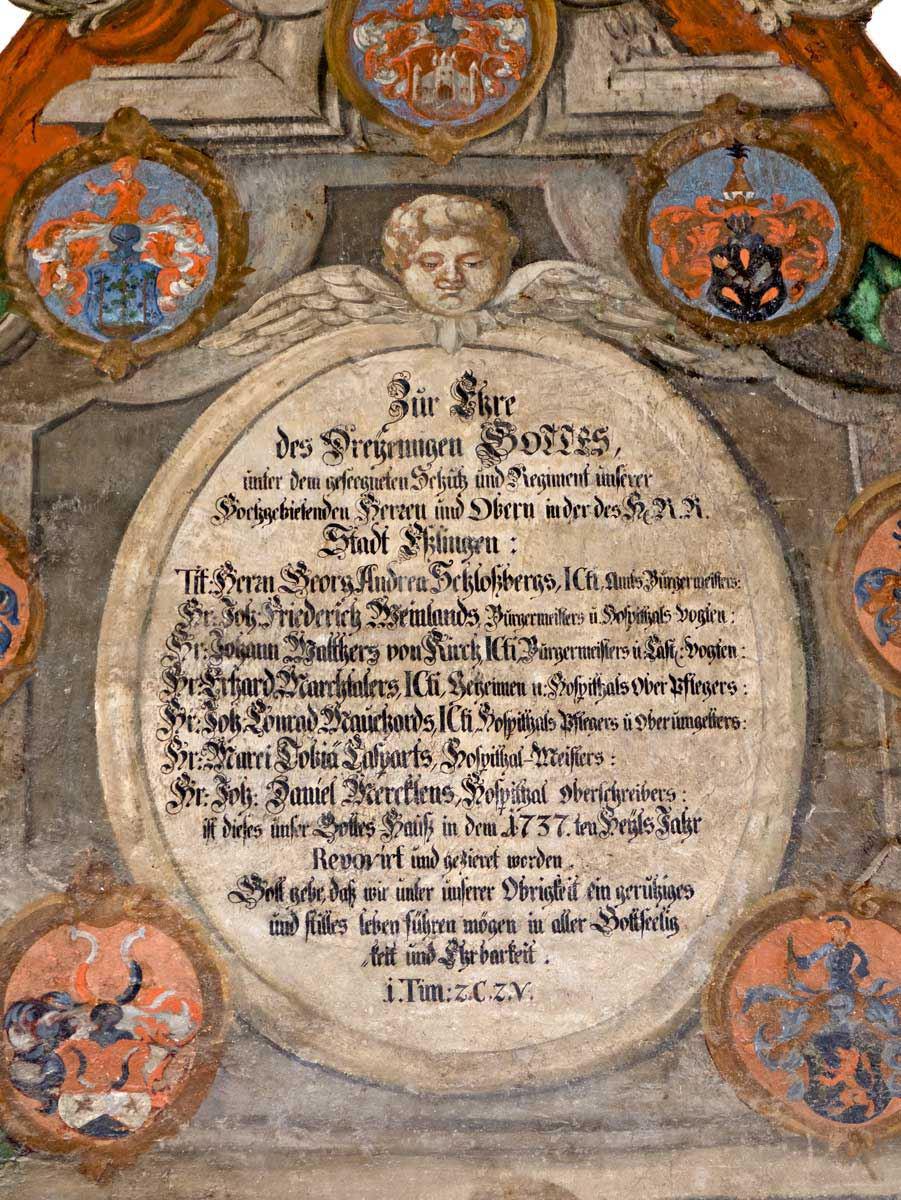 Zür Ehre
des Dreyeinigen GOTTES,
unter dem geseegneten Schütz und Regiment unserer
Hochgebietenden Herren und Obern in der des H. R. R.
Stadt Eßlingen :
Tit: Herrn Georg Andreä Schloßbergs, ICti, Amts Bürgermeisters:
Hr: Joh: Friederich Weinlands, Bürgermeisters ü Hospithals Vogten :
Hr: Johann Walthers von Kirch ICti Bürgermeisters u: Cast: Vogten :
Hr: Erhard Marchtalers, ICti, Geheimen u: Hospithals Ober Pflegers :
Hr: Joh: Conrad Mauchards, ICti Hospithals Pflegers ü Oberümgelters:
Hr: Marci Tobiä Casparts, Hospithal-Meisters :
Hr: Joh: Daniel Mercklens, Hospithal Oberschreibers :
ist dieses unser Gottes Hauß in dem 1737. ten Heyls Jahr
Renovirt und gezieret worden.
Gott gebe, daß wir unter ünserer Obrigkeit ein geruhiges
und stilles leben führen mögen in aller Gottseelig
keit und Ehrbarkeit.
i. Tim: 2. C. 2. V.